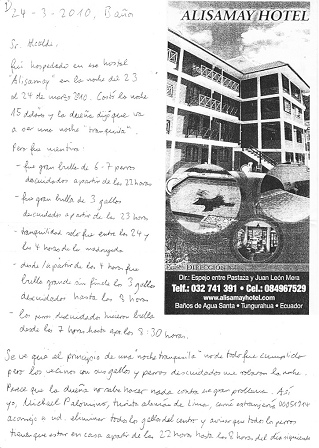 24-3-2010, Baños
Sr. Alcalde,
fui hospedado en ese hostal
"Alisamay" en la noche del 23
al 24 de marzo 2010. Costó la noche
15 dólares y la dueña dijo que va
a ser una noche "tranquila".
Pero fue mentira:
- fue gran bulla de 6-7 perros
descuidados a partir de las 23 horas
- fue gran bulla de 3 gallos
descuidados a partir de las 23 horas
- tranquilidad solo fue entre las 24 y
las 4 horas de la madrugada
- desde a partir de las 4 horas fue
bulla grande sin fin de los 3 gallos
descuidados hasta las 8 horas
- los perros descuidados hicieron bulla
desde las 7 horas hasta las 8:30 horas.
Se ve que el principio de una "noche tranquila" no de todo fue cumplido
pero los vecinos con sus gallos y perros descuidados me robaron la noche.
Parece que la dueña no sabe hacer nada contra ese gran problema. Así
yo, Michael Palomino, turista alemán de Lima, carné extranjería
aconsejo a ud. eliminar todos los gallos del centro y avisar que todos los perros
tienen que estar en casa a partir de las 22 horas hasta las 8 horas del día siguiente
ALISAMAY HOTEL
DIRECCIÓN
Dir.: Espejo entre Pastaza y Juan León Mera
Telf.: 032 741 391 • Cel.: 084967529
www.alisamayhotel.com
Baños de Agua Santa • Tungurahua • Ecuador